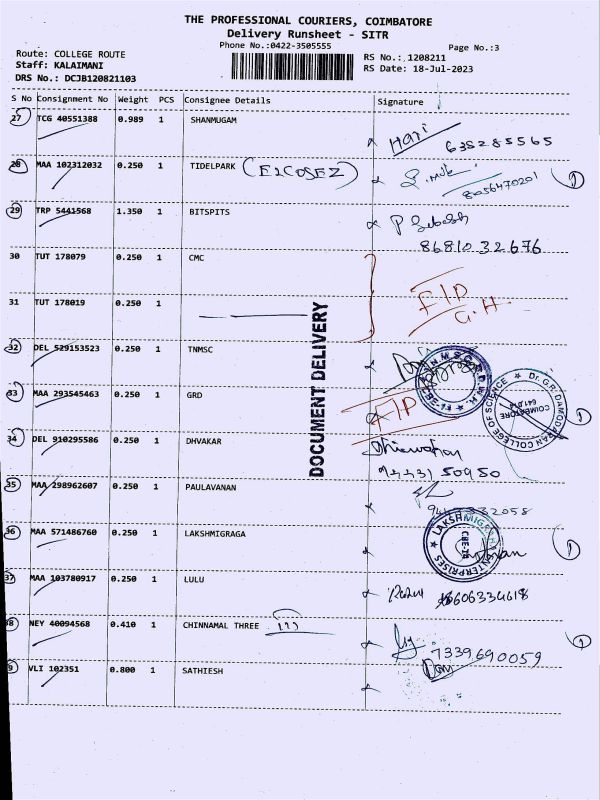 THE PROFESSIONAL COURIERS, COIMBATORE
Delivery Runsheet - SITR
Phone No.:0422-3505555
Page No.:3
Route: COLLEGE ROUTE
RS No.: 1208211
Staff: KALAIMANI
RS Date: 18-Jul-2023
DRS No.: DCJB120821103
S No Consignment No Weight PCS Consignee Details Signature
27 TCG 40551388 0.989 1 SHANMUGAM
Hari
635285565
28 MAA 102312032 0.250 1 TIDELPARK (ELCOSEZ)
8056470201 1
29 TRP 5441568 1.350 1 BITSPITS
8681032676
30 TUT 178079 0.250 1 CMC
31 TUT 178019 0.250 1
F.I.D
G.H
32 DEL 529153523 0.250 1 TNMSC
33 MAA 293545463 0.250 1 GRD
F.I.D
Dr. G.R. DAMODARAN COLLEGE OF SCIENCE
COIMBATORE
641 014
1
34 DEL 910295586 0.250 1 DHVAKAR
9443150950
35 MAA 298962607 0.250 1 PAULAVANAN
36 MAA 571486760 0.250 1 LAKSHMIGRAGA
LAKSHMIGRAHA ENTERPRISES
CBE-14
1
37 MAA 103780917 0.250 1 LULU
8606334618
38 NEY 40094568 0.410 1 CHINNAMAL THREE (11)
7339690059
1
39 VLI 102351 0.800 1 SATHIESH
DOCUMENT DELIVERY